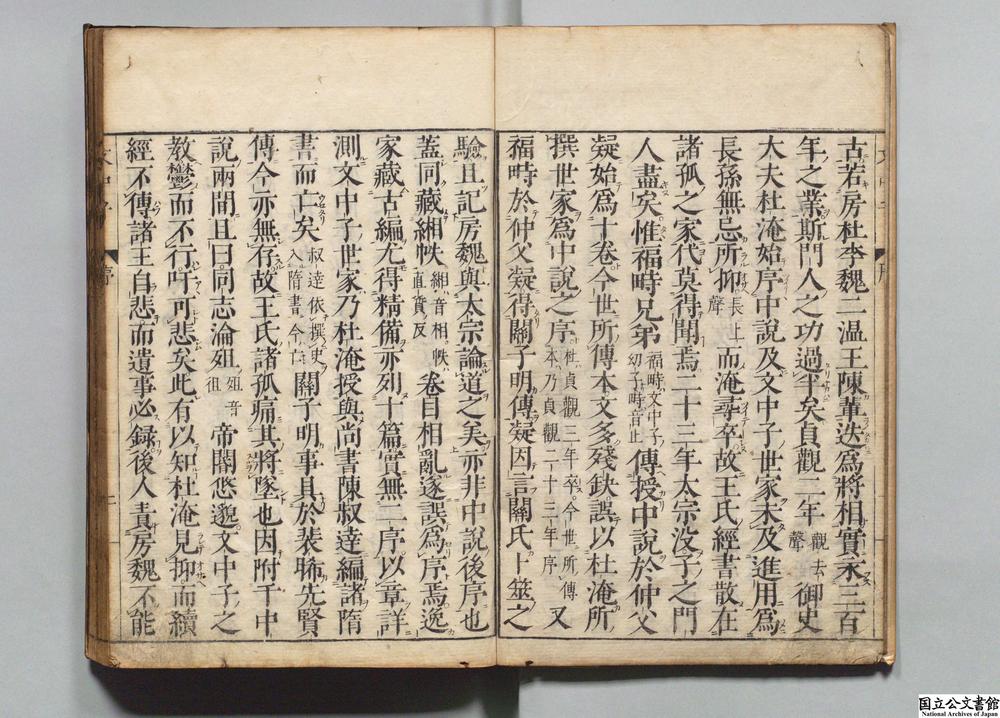 古若房杜李魏二温王陳輩迭爲將相實永三百
年之業斯門人之功過半矣貞觀二年觀去聲御史
大夫杜淹始序中說及文中子世家未及進用爲
長孫無忌所抑長上聲而淹尋卒故王氏經書散在
諸孤之家代莫得聞焉二十三年太宗没子之門
人盡矣惟福畤兄弟福畤文中子幼子畤音止傳授中說於仲父
凝始爲十卷今世所傳本文多殘缺誤以杜淹所
撰世家爲中說之序杜貞觀三年卒今世所傳本乃貞觀二十三年序又
福畤於仲父凝得關子明傳凝因言關氏卜筮之
驗且記房魏與太宗論道之美亦非中說後序也
蓋同藏緗帙緗音相帙直質反卷目相亂遂誤爲序焉逸
家藏古編尤得精備亦列十篇實無二序以章詳
測文中子世家乃杜淹授與尚書陳叔達編諸隋
書而亡矣叔達依撰史入隋書今亡關子明事具於裴晞先賢
傳今亦無存故王氏諸孤痛其將墜也因附于中
說兩間且曰同志淪殂殂音徂帝閽悠邈文中子之
教鬱而不行吁可悲矣此有以知杜淹見抑而續
經不傳諸王自悲而遺事必録後人責房魏不能
国立公文書館
National Archives of Japan